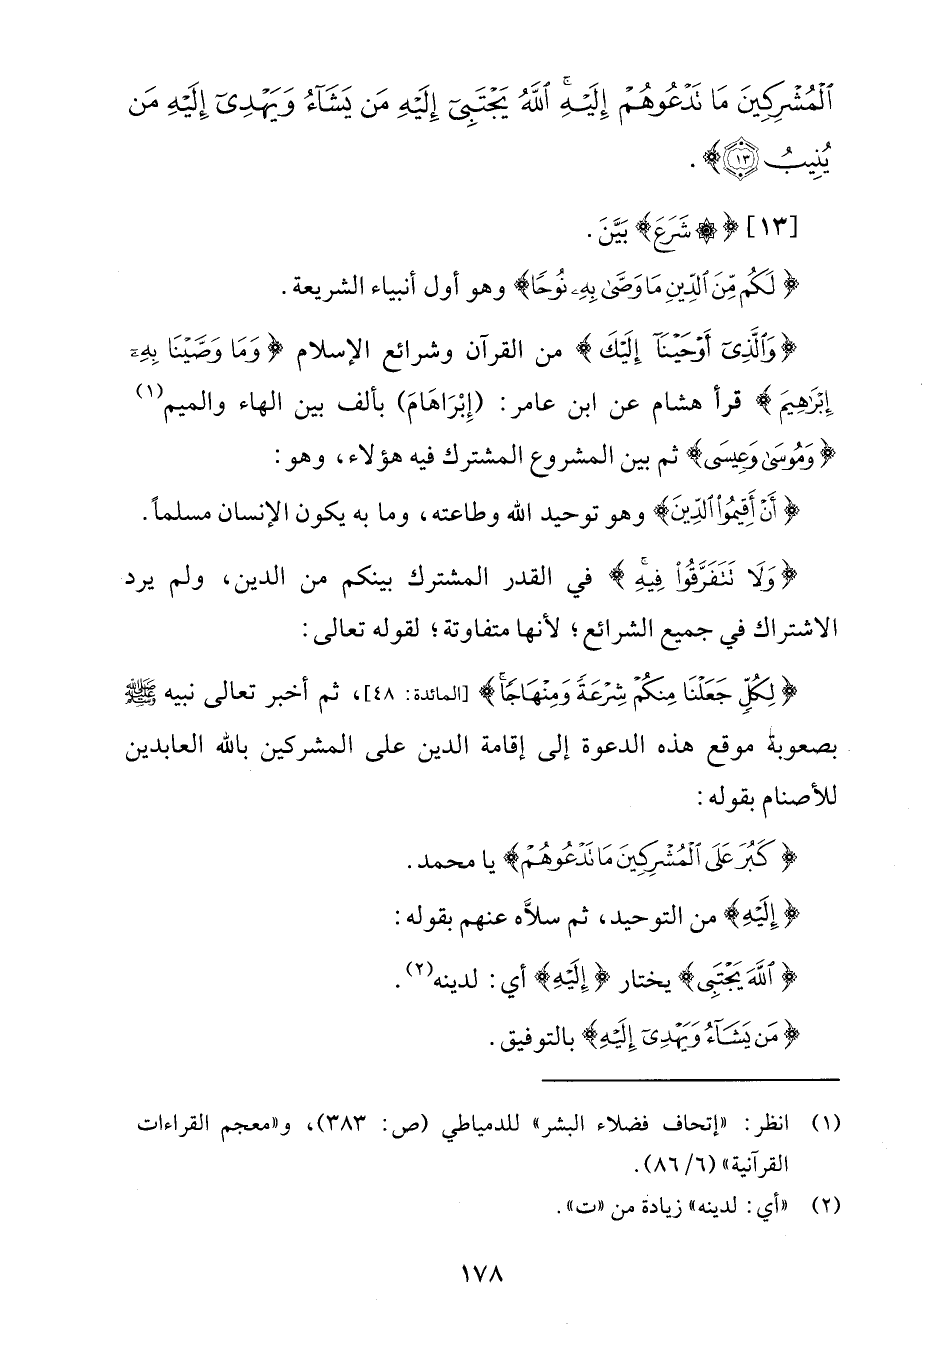 ٱلْمُشْرِكِينَ مَا تَدْعُوهُمْ إِلَيْهِ ۚ ٱللَّهُ يَجْتَبِىٓ إِلَيْهِ مَن يَشَآءُ وَيَهْدِىٓ إِلَيْهِ مَن
يُنِيبُ ﴿١٣﴾ .
[١٣] ﴿۞ شَرَعَ﴾ بَيَّنَ .
﴿لَكُم مِّنَ ٱلدِّينِ مَا وَصَّىٰ بِهِۦ نُوحًا﴾ وهو أول أنبياء الشريعة .
﴿وَٱلَّذِىٓ أَوْحَيْنَآ إِلَيْكَ﴾ من القرآن وشرائع الإسلام ﴿وَمَا وَصَّيْنَا بِهِۦٓ
إِبْرَٰهِيمَ﴾ قرأ هشام عن ابن عامر: (إِبْرَاهَامَ) بألف بين الهاء والميم(١)
﴿وَمُوسَىٰ وَعِيسَىٰ﴾ ثم بين المشروع المشترك فيه هؤلاء، وهو:
﴿أَنْ أَقِيمُوا۟ ٱلدِّينَ﴾ وهو توحيد الله وطاعته، وما به يكون الإنسان مسلماً.
﴿وَلَا تَتَفَرَّقُوا۟ فِيهِ ۚ﴾ في القدر المشترك بينكم من الدين، ولم يرد
الاشتراك في جميع الشرائع؛ لأنها متفاوتة؛ لقوله تعالى:
﴿لِكُلٍّ جَعَلْنَا مِنكُمْ شِرْعَةً وَمِنْهَاجًا ۚ﴾ [المائدة: ٤٨]، ثم أخبر تعالى نبيه ﷺ
بصعوبة موقع هذه الدعوة إلى إقامة الدين على المشركين بالله العابدين
للأصنام بقوله:
﴿كَبُرَ عَلَى ٱلْمُشْرِكِينَ مَا تَدْعُوهُمْ﴾ يا محمد.
﴿إِلَيْهِ﴾ من التوحيد، ثم سلاَّه عنهم بقوله:
﴿ٱللَّهُ يَجْتَبِىٓ﴾ يختار ﴿إِلَيْهِ﴾ أي: لدينه(٢).
﴿مَن يَشَآءُ وَيَهْدِىٓ إِلَيْهِ﴾ بالتوفيق.
(١) انظر: «إتحاف فضلاء البشر» للدمياطي (ص: ٣٨٣)، و«معجم القراءات
القرآنية» (٦/ ٨٦).
(٢) «أي: لدينه» زيادة من «ت».
١٧٨